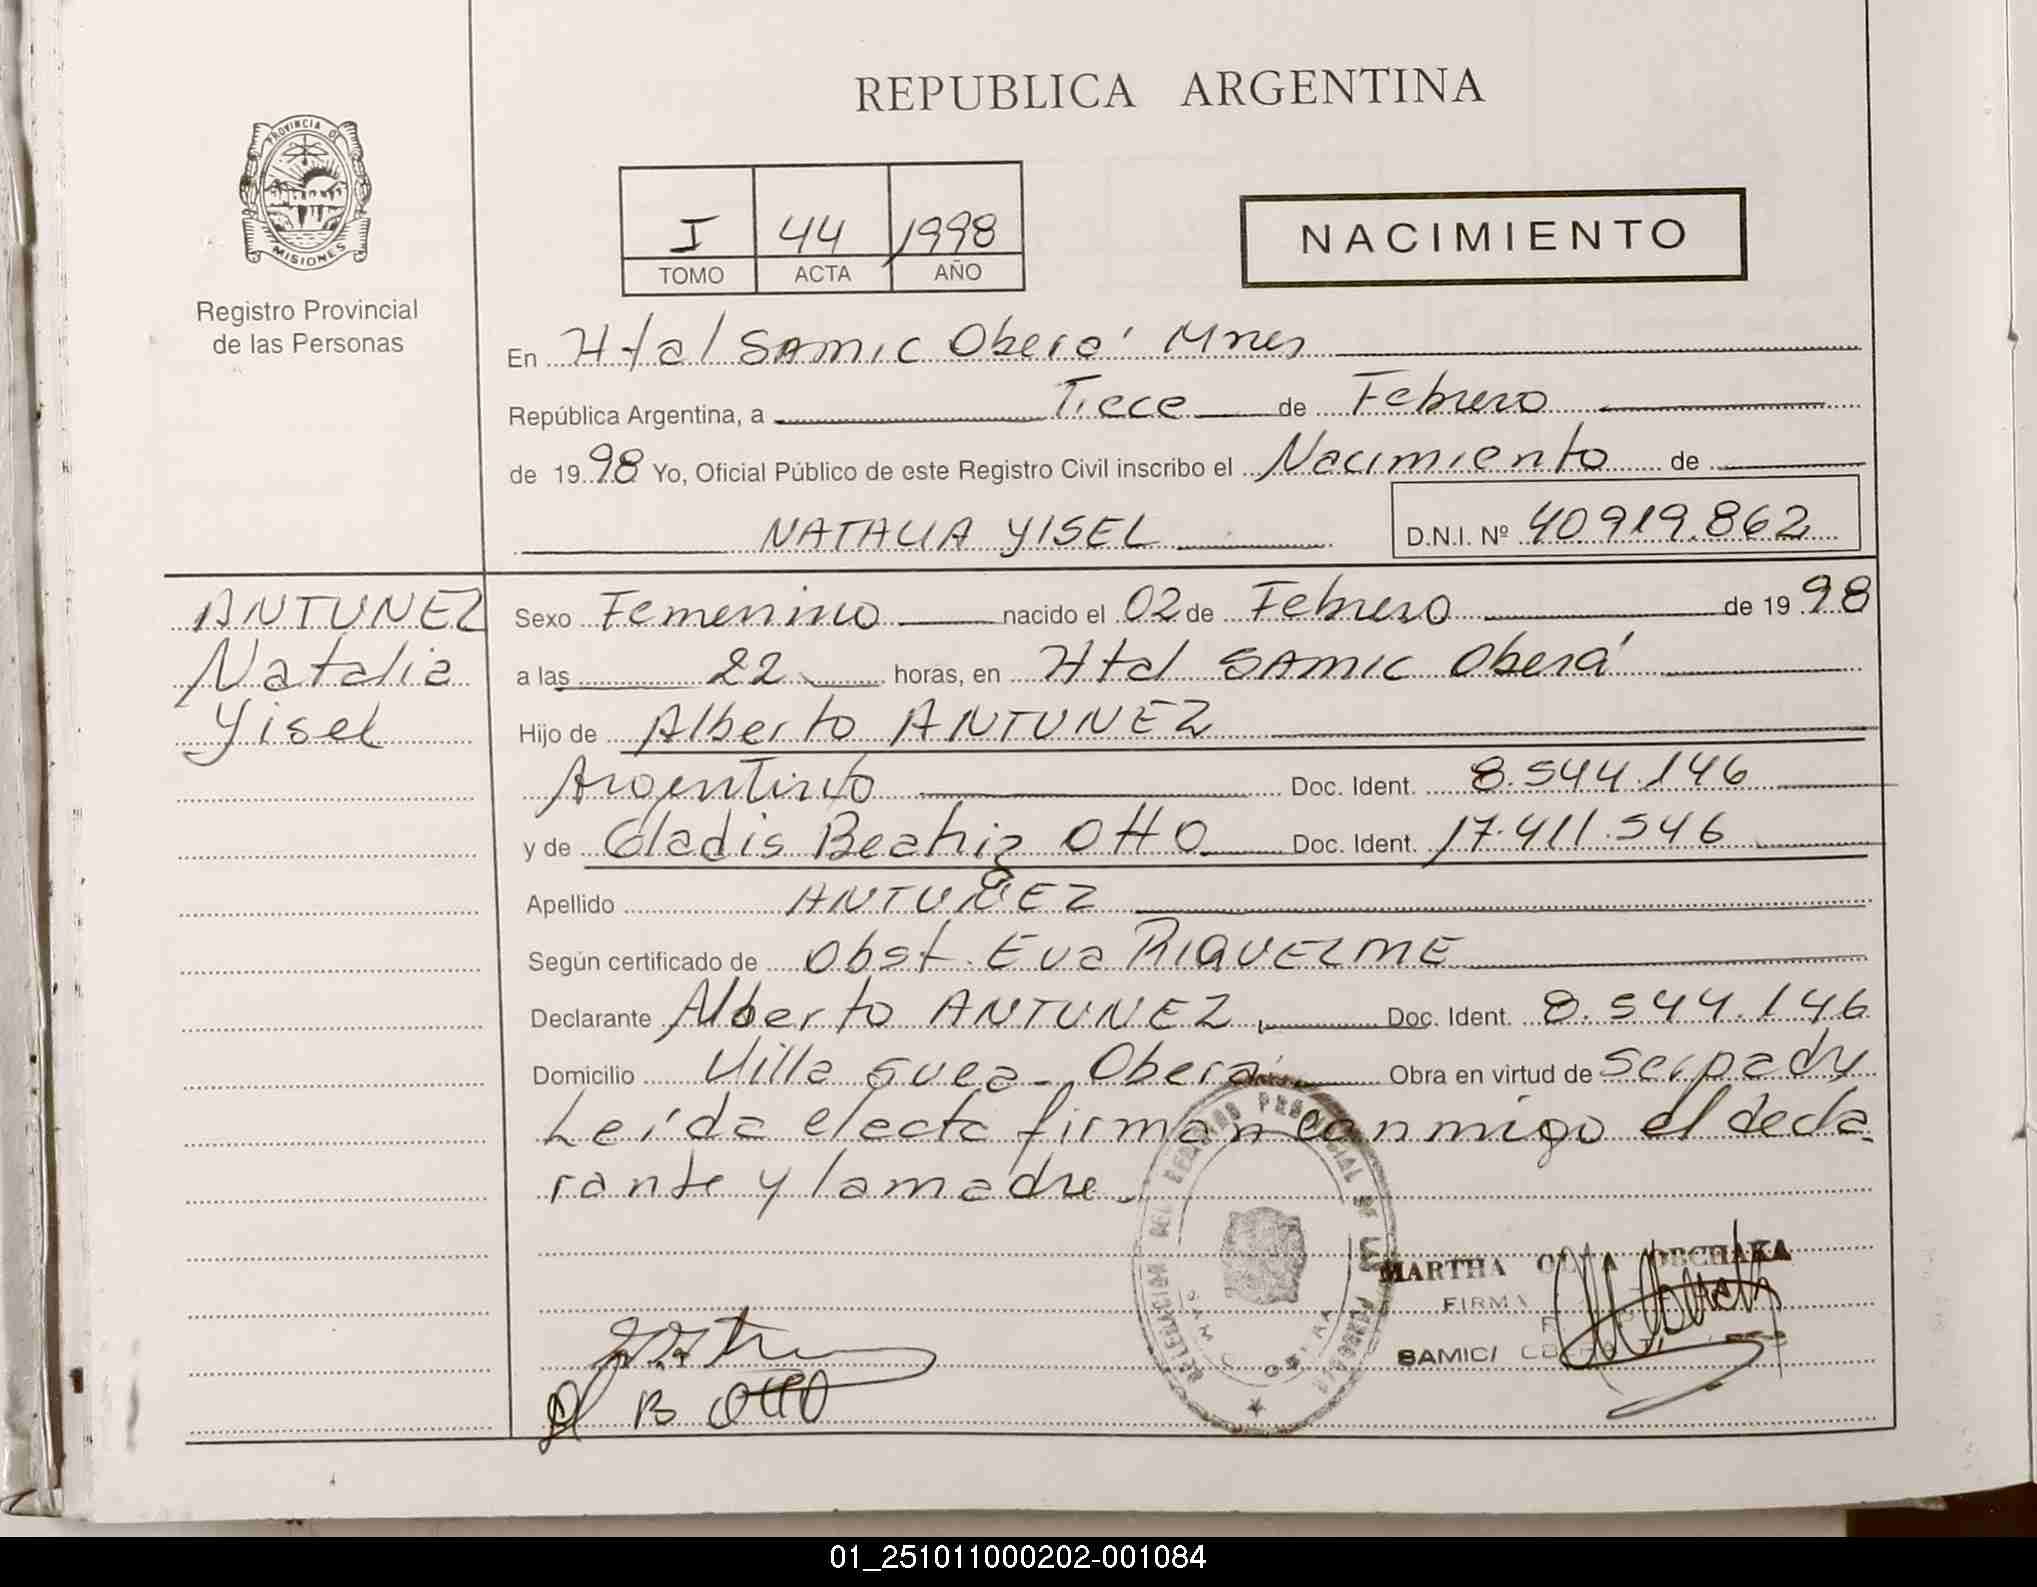 REPUBLICA ARGENTINA
PROVINCIA DE
MISIONES
Registro Provincial
de las Personas
I 44 1998
TOMO ACTA AÑO
NACIMIENTO
En Htal SAMIC Oberá Mnes
República Argentina, a Trece de Febrero
de 1998 Yo, Oficial Público de este Registro Civil inscribo el Nacimiento de
NATALIA YISEL D.N.I. Nº 40919.862
ANTUNEZ
Natalia
Yisel
Sexo Femenino nacido el 02 de Febrero de 1998
a las 22 horas, en Htal SAMIC Oberá
Hijo de Alberto ANTUNEZ
Argentino Doc. Ident. 8.544.146
y de Gladis Beatriz OTTO Doc. Ident. 17.411.546
Apellido ANTUNEZ
Según certificado de Obst. Eva RIQUELME
Declarante Alberto ANTUNEZ Doc. Ident. 8.544.146
Domicilio Villa - Oberá Obra en virtud de ser padre
Leída el acta firman conmigo el decla
rante y la madre.
MARTHA OBCHAKA
FIRMA
SAMIC/
B OTTO
01_251011000202-001084